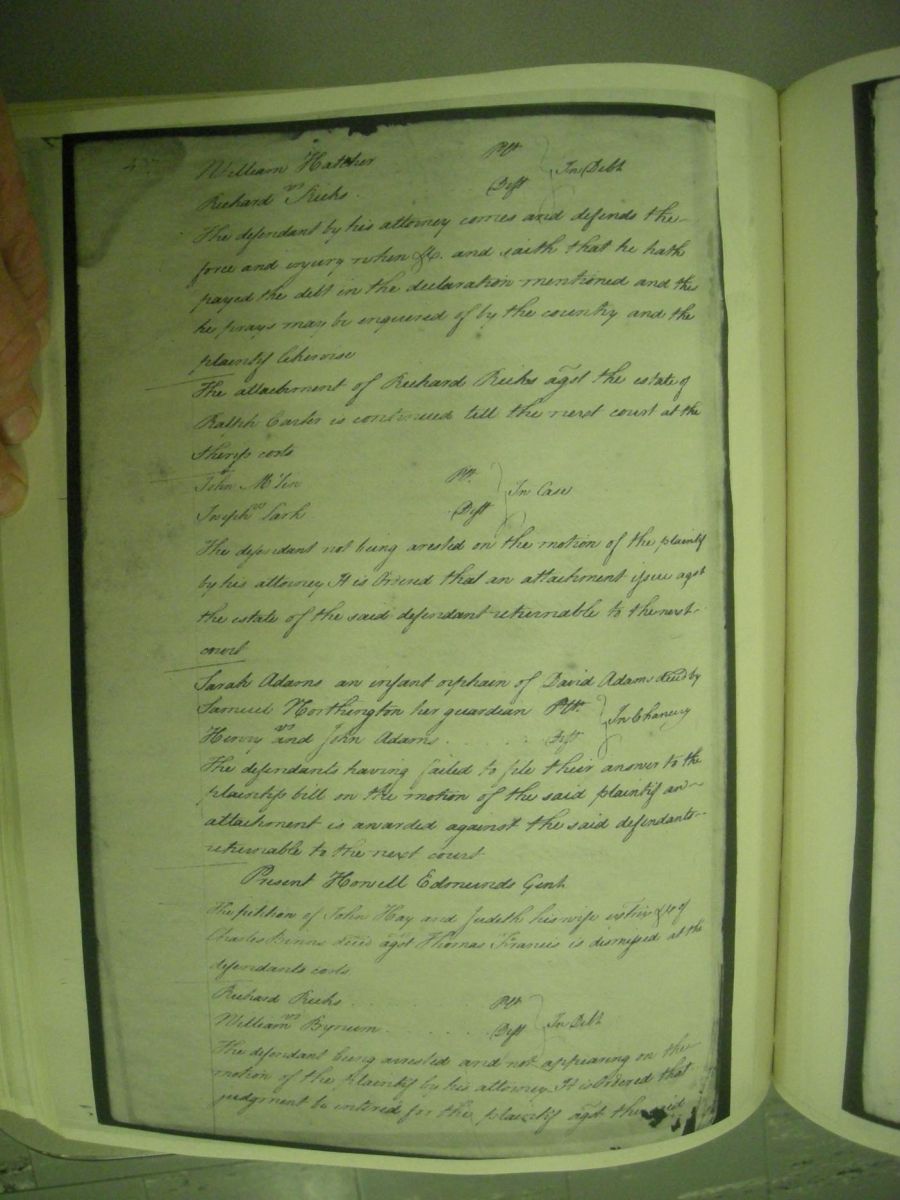 William Hatcher Plt
vs In Debt
Richard Ricks. Deft
The defendant by his attorney comes and defends the
force and injury when &c. and saith that he hath
payed the debt in the declaration mentioned and this
he prays may be enquered of by the country and the
plaintif likewise
The attachment of Richard Ricks agst the estate of
Ralph Carter is continued till the next court at the
Sherifs costs
John Plt.
vs In Case
Joseph Lark Deft
The defendant not being arested on the motion of the plaintif
by his attorney It is Ordered that an attachment issue agst
the estate of the said defendant returnable to the next
court
Sarah Adams an infant orphain of David Adams deced by
Samuel Northington her guardian Plt.
vs In Chancery
Henry and John Adams Deft
The defendants having failed to file their answer to the
plaintifs bill on the motion of the said plaintif an
attachment is awarded against the said defendants
returnable to the next court
Present Howell Edmunds Gent
The petition of John Hay and Judith his wife &c of
Charles Binns deced agst Thomas Francis is dismissed at the
defendants costs
Richard Ricks Plt
vs In Debt
William Bynum Deft
The defendant being arrested and not appearing on the
motion of the plaintif by his attorney It is Ordered that
judgment be entered for the plaintif agst the said